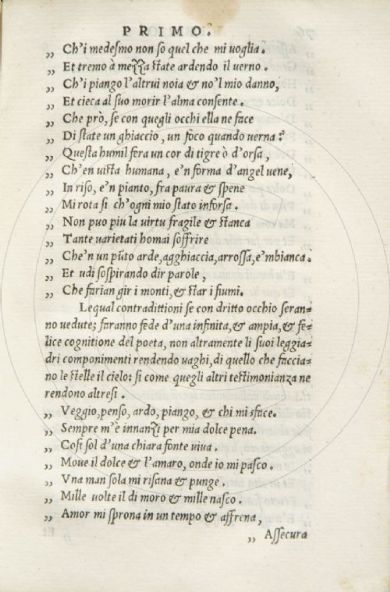 PRIMO.
„ Ch'i medesmo non so quel che mi voglia.
„ Et tremo à mezza state ardendo il verno.
„ Ch'i piango l'altrui noia & no'l mio danno,
„ Et cieca al suo morir l'alma consente.
„ Che prò, se con quegli occhi ella ne face
„ Di state un ghiaccio, un foco quando verna?
„ Questa humil fera un cor di tigre ò d'orsa,
„ Ch'en vista humana, e'n forma d'angel uene,
„ In riso, e'n pianto, fra paura & spene
„ Mi rota sì ch'ogni mio stato inforsa.
„ Non puo piu la uirtu fragile & stanca
„ Tante uarietati homai soffrire
„ Che'n un pũto arde, agghiaccia, arrossa, e'mbianca.
„ Et udi sospirando dir parole,
„ Che farian gir i monti, & star i fiumi.
Lequal contraddittioni se con dritto occhio seran=
no uedute; faranno fede d'una infinita, & ampia, & fe=
lice cognitione del poeta, non altramente li suoi leggia=
dri componimenti rendendo uaghi, di quello che faccia=
no le stelle il cielo: sì come quegli altri testimonianza ne
rendono altresì.
„ Veggio, penso, ardo, piango, & chi mi sface.
„ Sempre m'è innanzi per mia dolce pena.
„ Cosi sol d'una chiara fonte uiua.
„ Moue il dolce & l'amaro, onde io mi pasco.
„ Vna man sola mi risana & punge.
„ Mille uolte il dì moro & mille nasco.
„ Amor mi sprona in un tempo & affrena,
„ Assecura